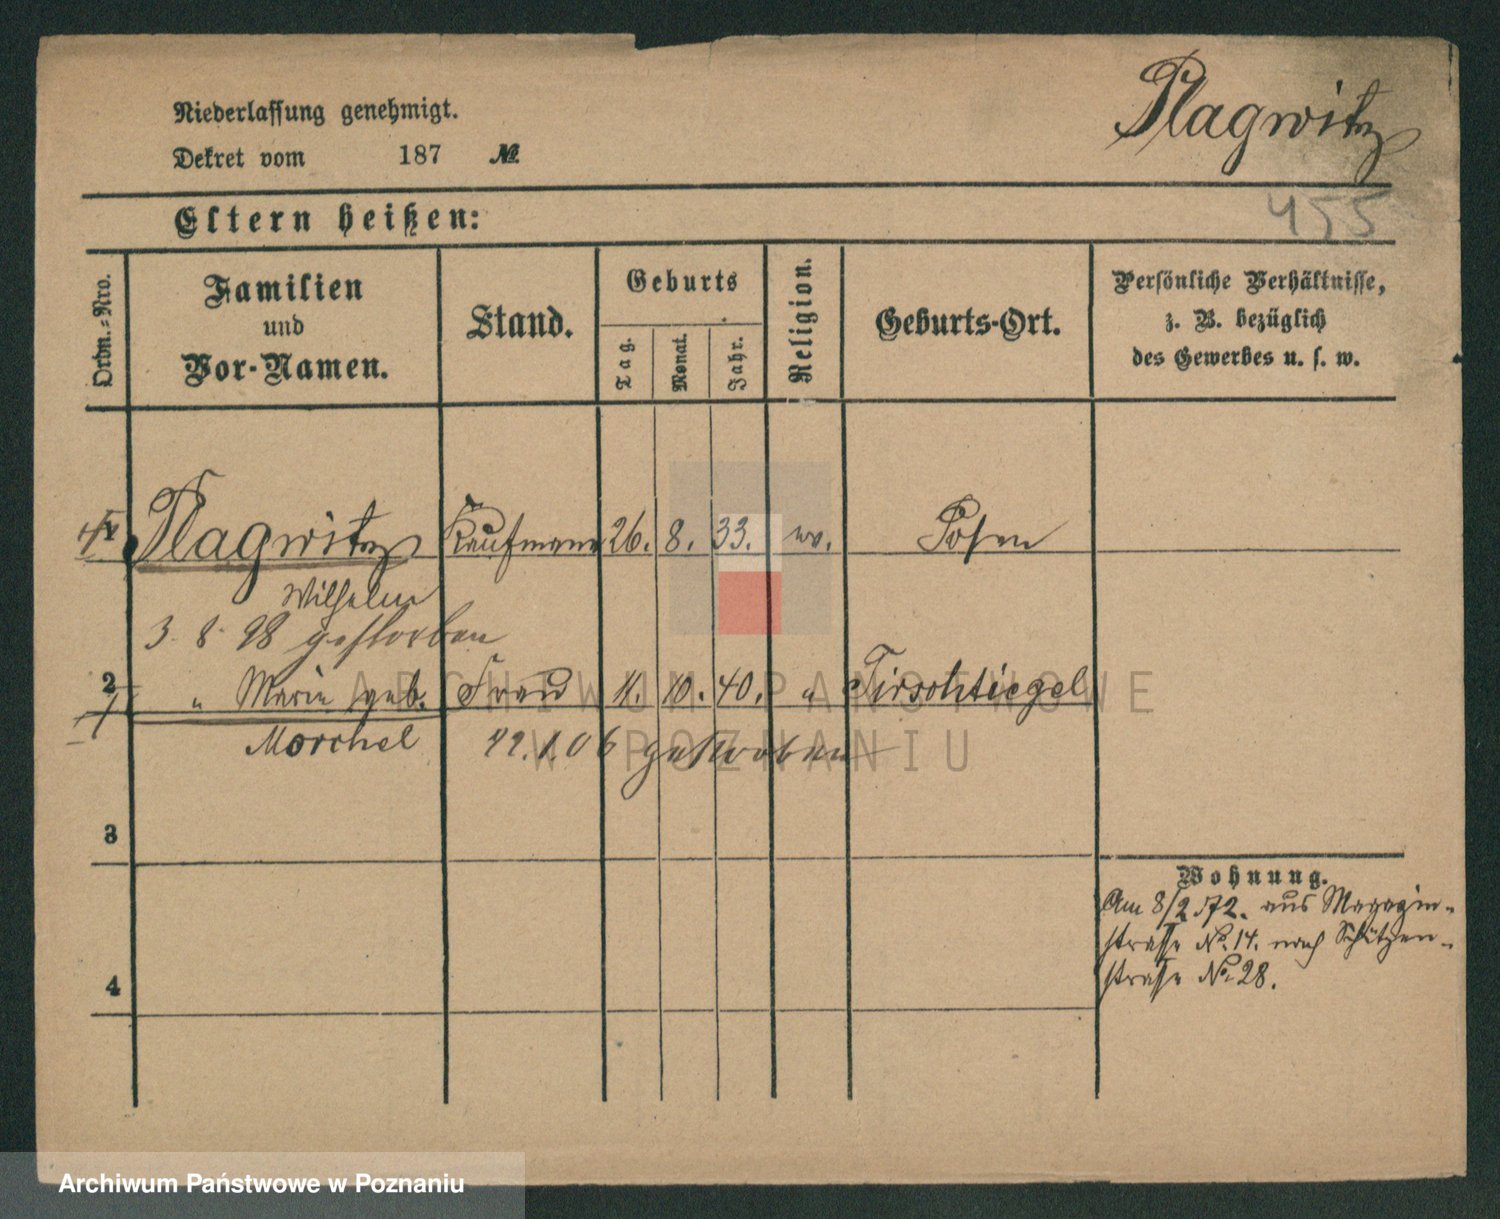 Niederlassung genehmigt.
Dekret vom 187 №
Plagwitz
455
Eltern heißen:
Ordn.-Nro.
Familien
und
Vor-Namen.
Stand.
Geburts
Tag.
Monat.
Jahr.
Religion.
Geburts-Ort.
Persönliche Verhältnisse,
z. B. bezüglich
des Gewerbes u. s. w.
Plagwitz Kaufmann 26. 8. 33. ev. Posen
Wilhelm
3. 8. 98 gestorben
2 " Marie geb. Frau 11. 10. 40. " Tirschtiegel
Morchel 22.1.06 gestorben
3
4
Wohnung.
Am 8/2 72. aus Magazin-
strasse No. 14. nach Schützen-
strasse No. 28.
ARCHIWUM PAŃSTWOWE
W POZNANIU
Archiwum Państwowe w Poznaniu